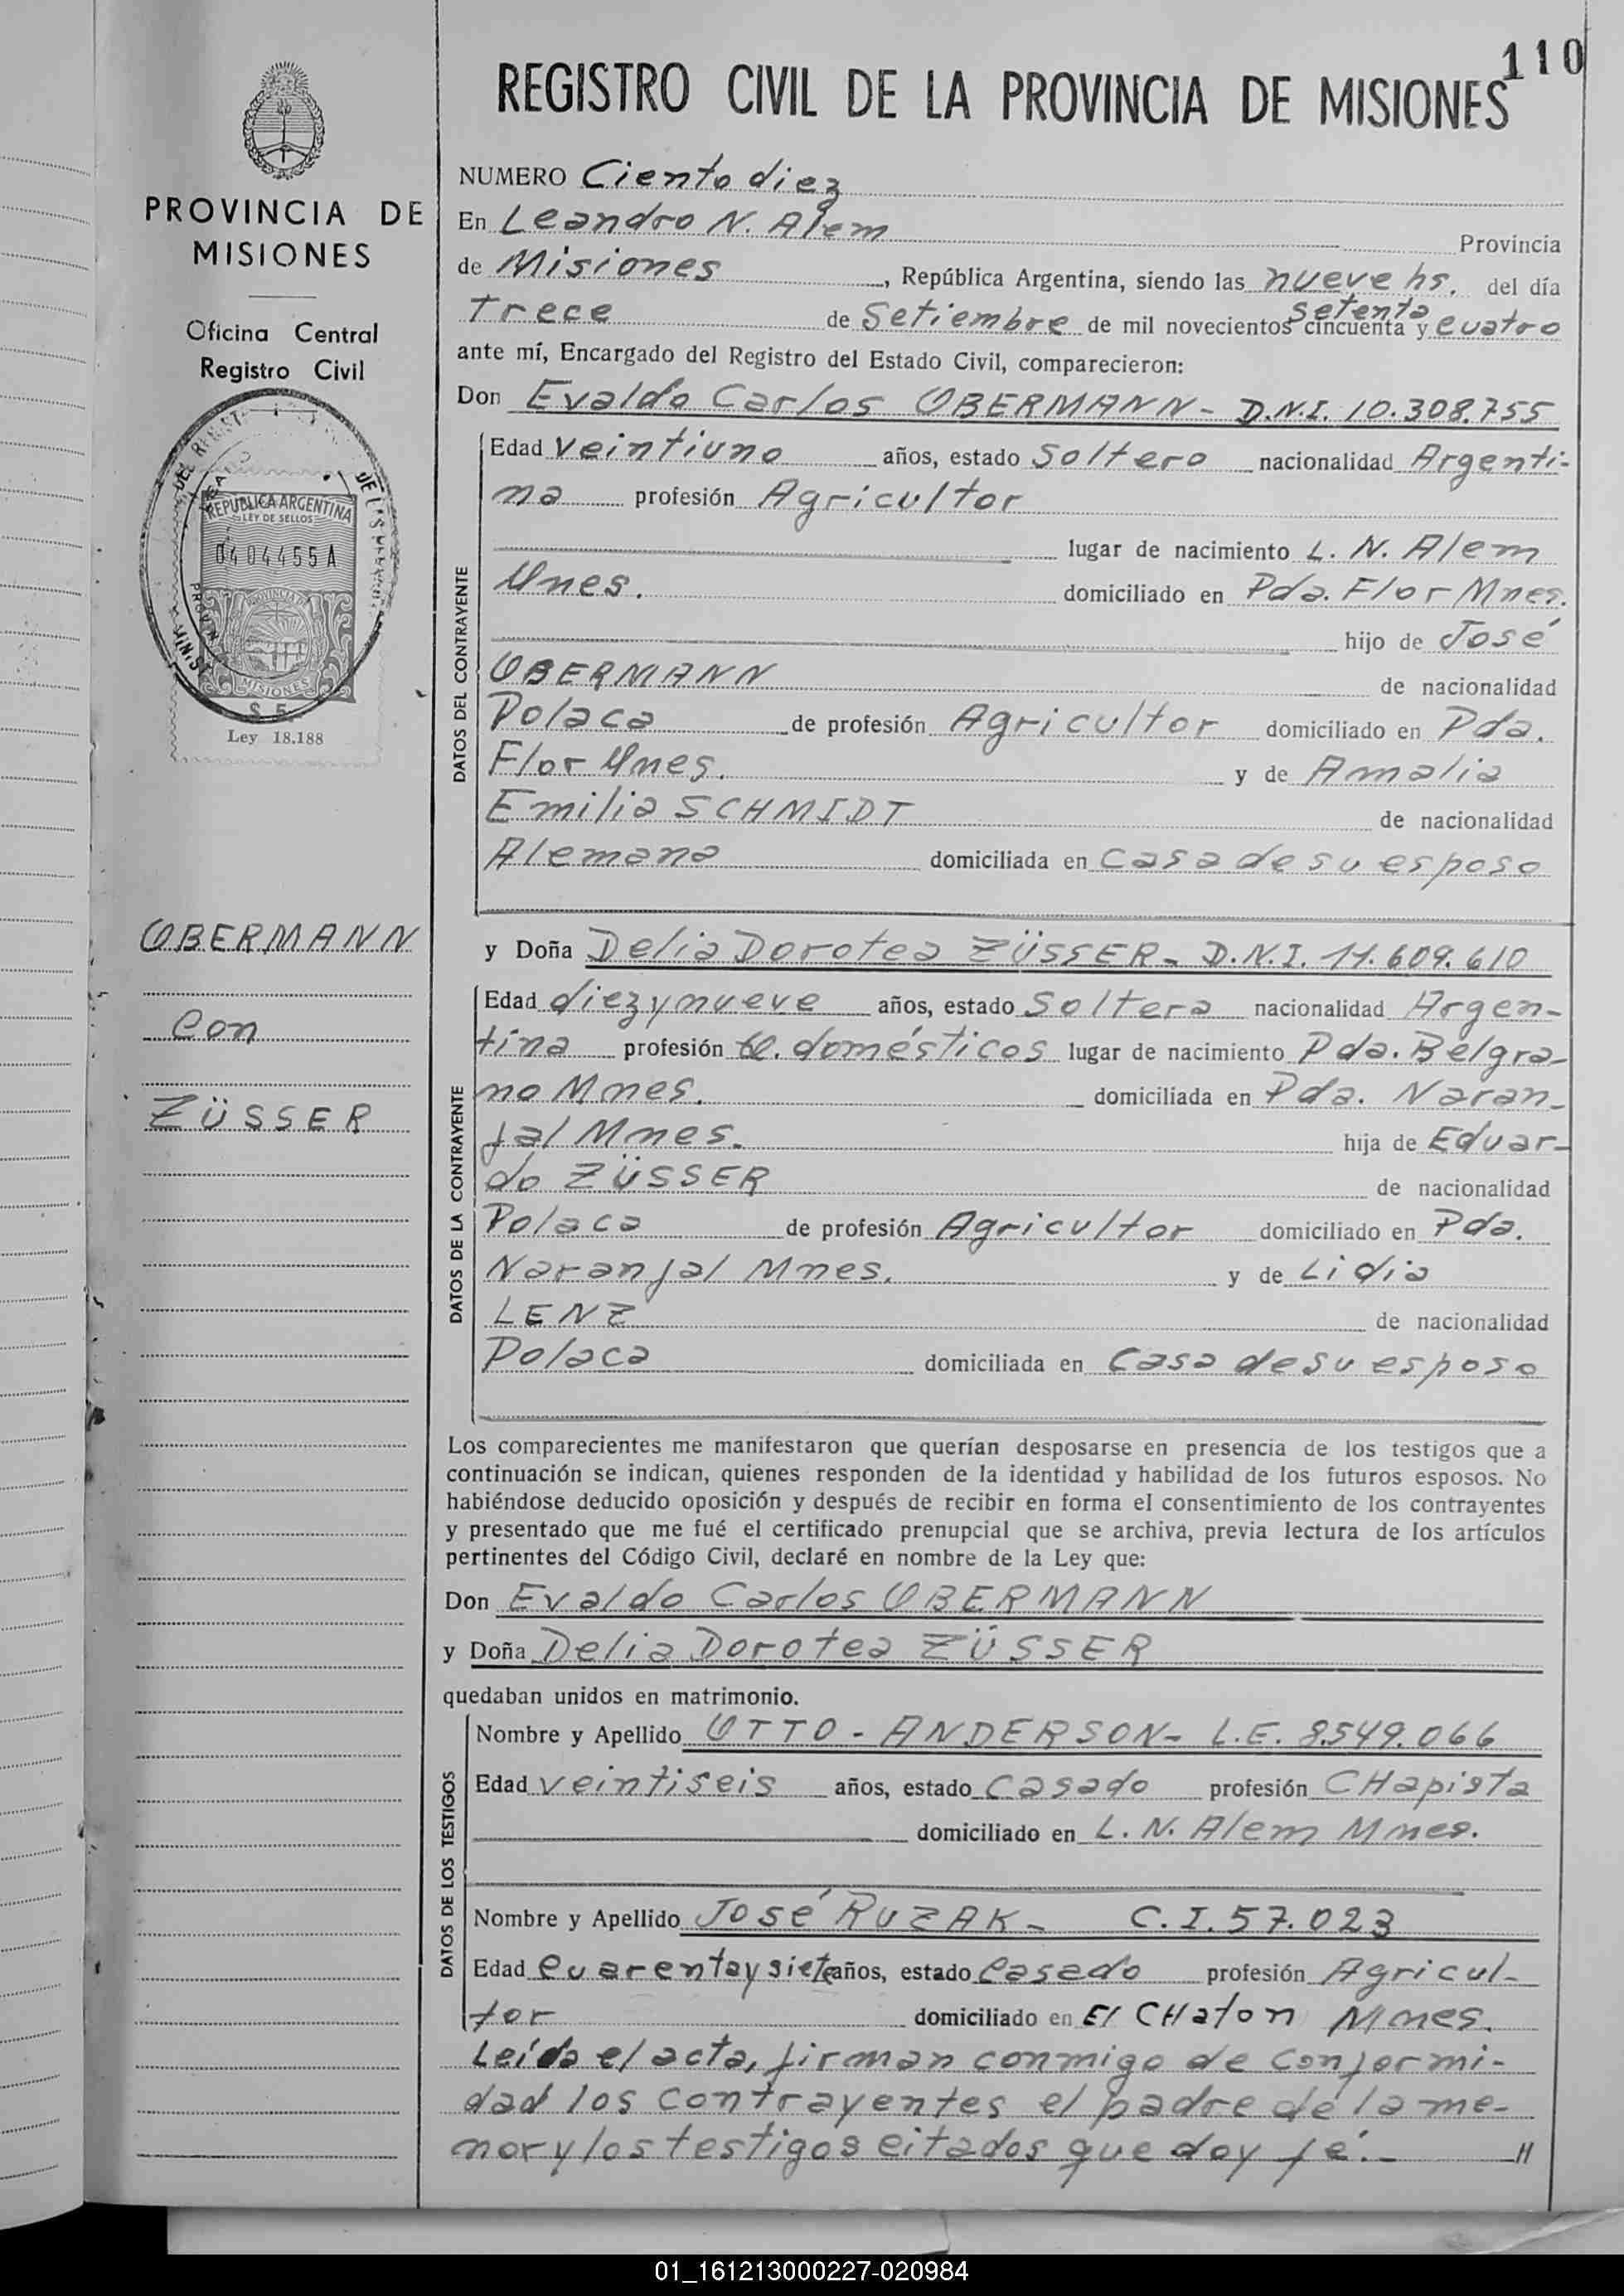 110
REGISTRO CIVIL DE LA PROVINCIA DE MISIONES
PROVINCIA DE
MISIONES
Oficina Central
Registro Civil
REPUBLICA ARGENTINA
LEY DE SELLOS
0404455A
PROVINCIA DE
MISIONES
$ 5
Ley 18.188
OBERMANN
con
ZÜSSER
NUMERO Ciento diez
En Leandro N. Alem Provincia
de Misiones, República Argentina, siendo las nueve hs. del día
Trece de Setiembre de mil novecientos setenta cincuenta y cuatro
ante mí, Encargado del Registro del Estado Civil, comparecieron:
Don Evaldo Carlos OBERMANN - D.N.I. 10.308.755
DATOS DEL CONTRAYENTE
Edad veintiuno años, estado Soltero nacionalidad Argenti-
na profesión Agricultor
lugar de nacimiento L. N. Alem
Mnes. domiciliado en Pda. Flor Mnes.
hijo de José
OBERMANN de nacionalidad
Polaca de profesión Agricultor domiciliado en Pda.
Flor Mnes. y de Amalia
Emilia SCHMIDT de nacionalidad
Alemana domiciliada en casa de su esposo
y Doña Delia Dorotea ZÜSSER - D.N.I. 11.609.610
DATOS DE LA CONTRAYENTE
Edad diez y nueve años, estado Soltera nacionalidad Argen-
tina profesión Q. domésticos lugar de nacimiento Pda. Belgra-
no Mnes. domiciliada en Pda. Naran-
jal Mnes. hija de Eduar-
do ZÜSSER de nacionalidad
Polaca de profesión Agricultor domiciliado en Pda.
Naranjal Mnes. y de Lidia
LENZ de nacionalidad
Polaca domiciliada en Casa de su esposo
Los comparecientes me manifestaron que querían desposarse en presencia de los testigos que a
continuación se indican, quienes responden de la identidad y habilidad de los futuros esposos. No
habiéndose deducido oposición y después de recibir en forma el consentimiento de los contrayentes
y presentado que me fué el certificado prenupcial que se archiva, previa lectura de los artículos
pertinentes del Código Civil, declaré en nombre de la Ley que:
Don Evaldo Carlos OBERMANN
y Doña Delia Dorotea ZÜSSER
quedaban unidos en matrimonio.
DATOS DE LOS TESTIGOS
Nombre y Apellido OTTO - ANDERSON - L.E. 8.549.066
Edad veintiseis años, estado casado profesión CHapista
domiciliado en L. N. Alem Mnes.
Nombre y Apellido José RUZAK - C.I. 57.023
Edad cuarenta y siete años, estado Casado profesión Agricul-
tor domiciliado en El CHaton Mnes.
Leída el acta, firman conmigo de conformi-
dad los contrayentes el padre de la me-
nor y los testigos citados que doy fé.-
01_161213000227-020984